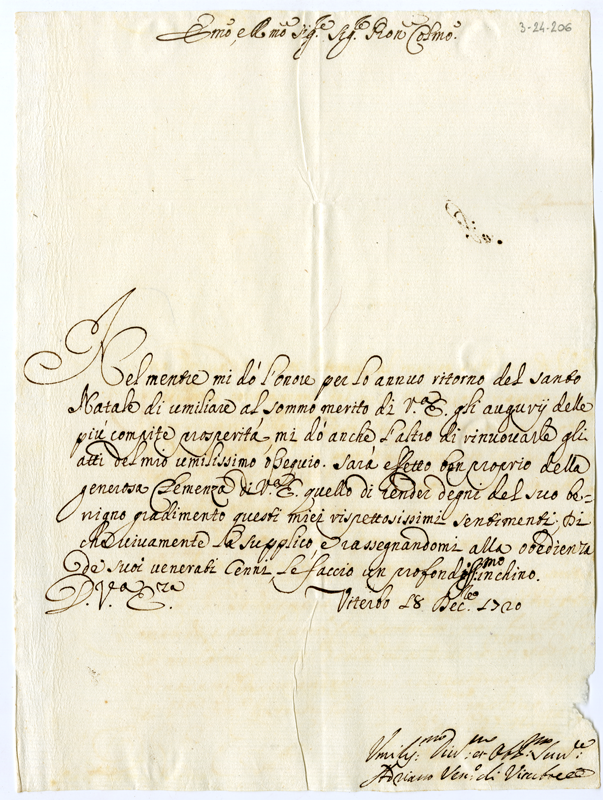 Emo, e Rmo Sig.re Sig.re Pron Colmo.
3-24-206
Nel mentre mi dò l'onore per lo annuo ritorno del santo
Natale di umiliare al sommo merito di V.a E. gli augurij delle
più compite prosperità, mi dò anche l'altro di rinuovarle gli
atti del mio umilissimo ossequio. Sarà effetto ben proprio della
generosa Clemenza di V.a E. quello di render degni del suo be=
nigno gradimento questi miei rispettosissimi sentimenti, Di
che vivamente la supplico, e rassegnandomi alla obedienza
de suoi venerati Cenni, le faccio un profondissimo inchino.
D. V.a Eza Viterbo 18 Dec.bre 1720
Umiliss:mo Div:mo et Obb:mo Serv.re
Adriano Ves.o di Viterbo